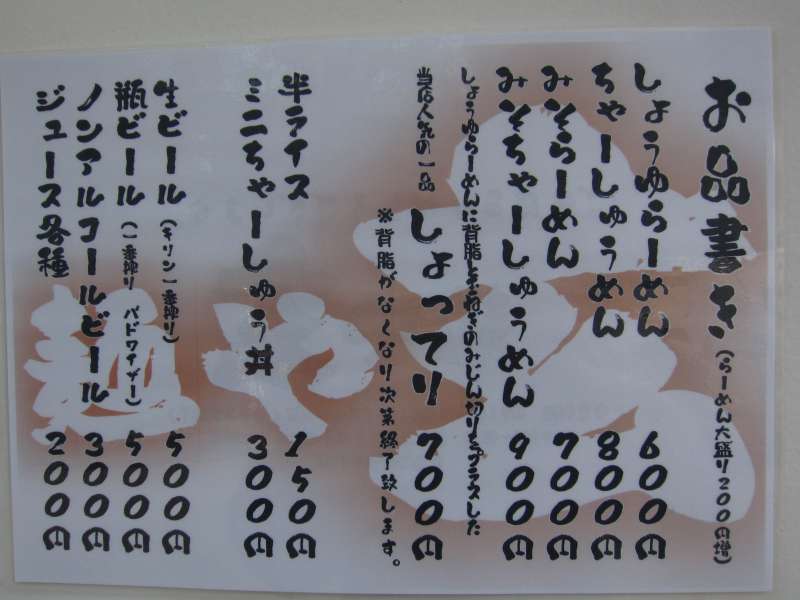 お品書き（らーめん大盛り200円増）
しょうゆらーめん 600円
ちゃーしゅうめん 800円
みそらーめん 700円
みそちゃーしゅうめん 900円
しょうゆらーめんに背脂と玉ねぎのみじん切りをプラスした
当店人気の一品 しょってり 700円
※背脂がなくなり次第終了致します。
半ライス 150円
ミニちゃーしゅう丼 300円
生ビール（キリン一番搾り） 500円
瓶ビール（一番搾り バドワイザー） 500円
ノンアルコールビール 300円
ジュース各種 200円
麺や